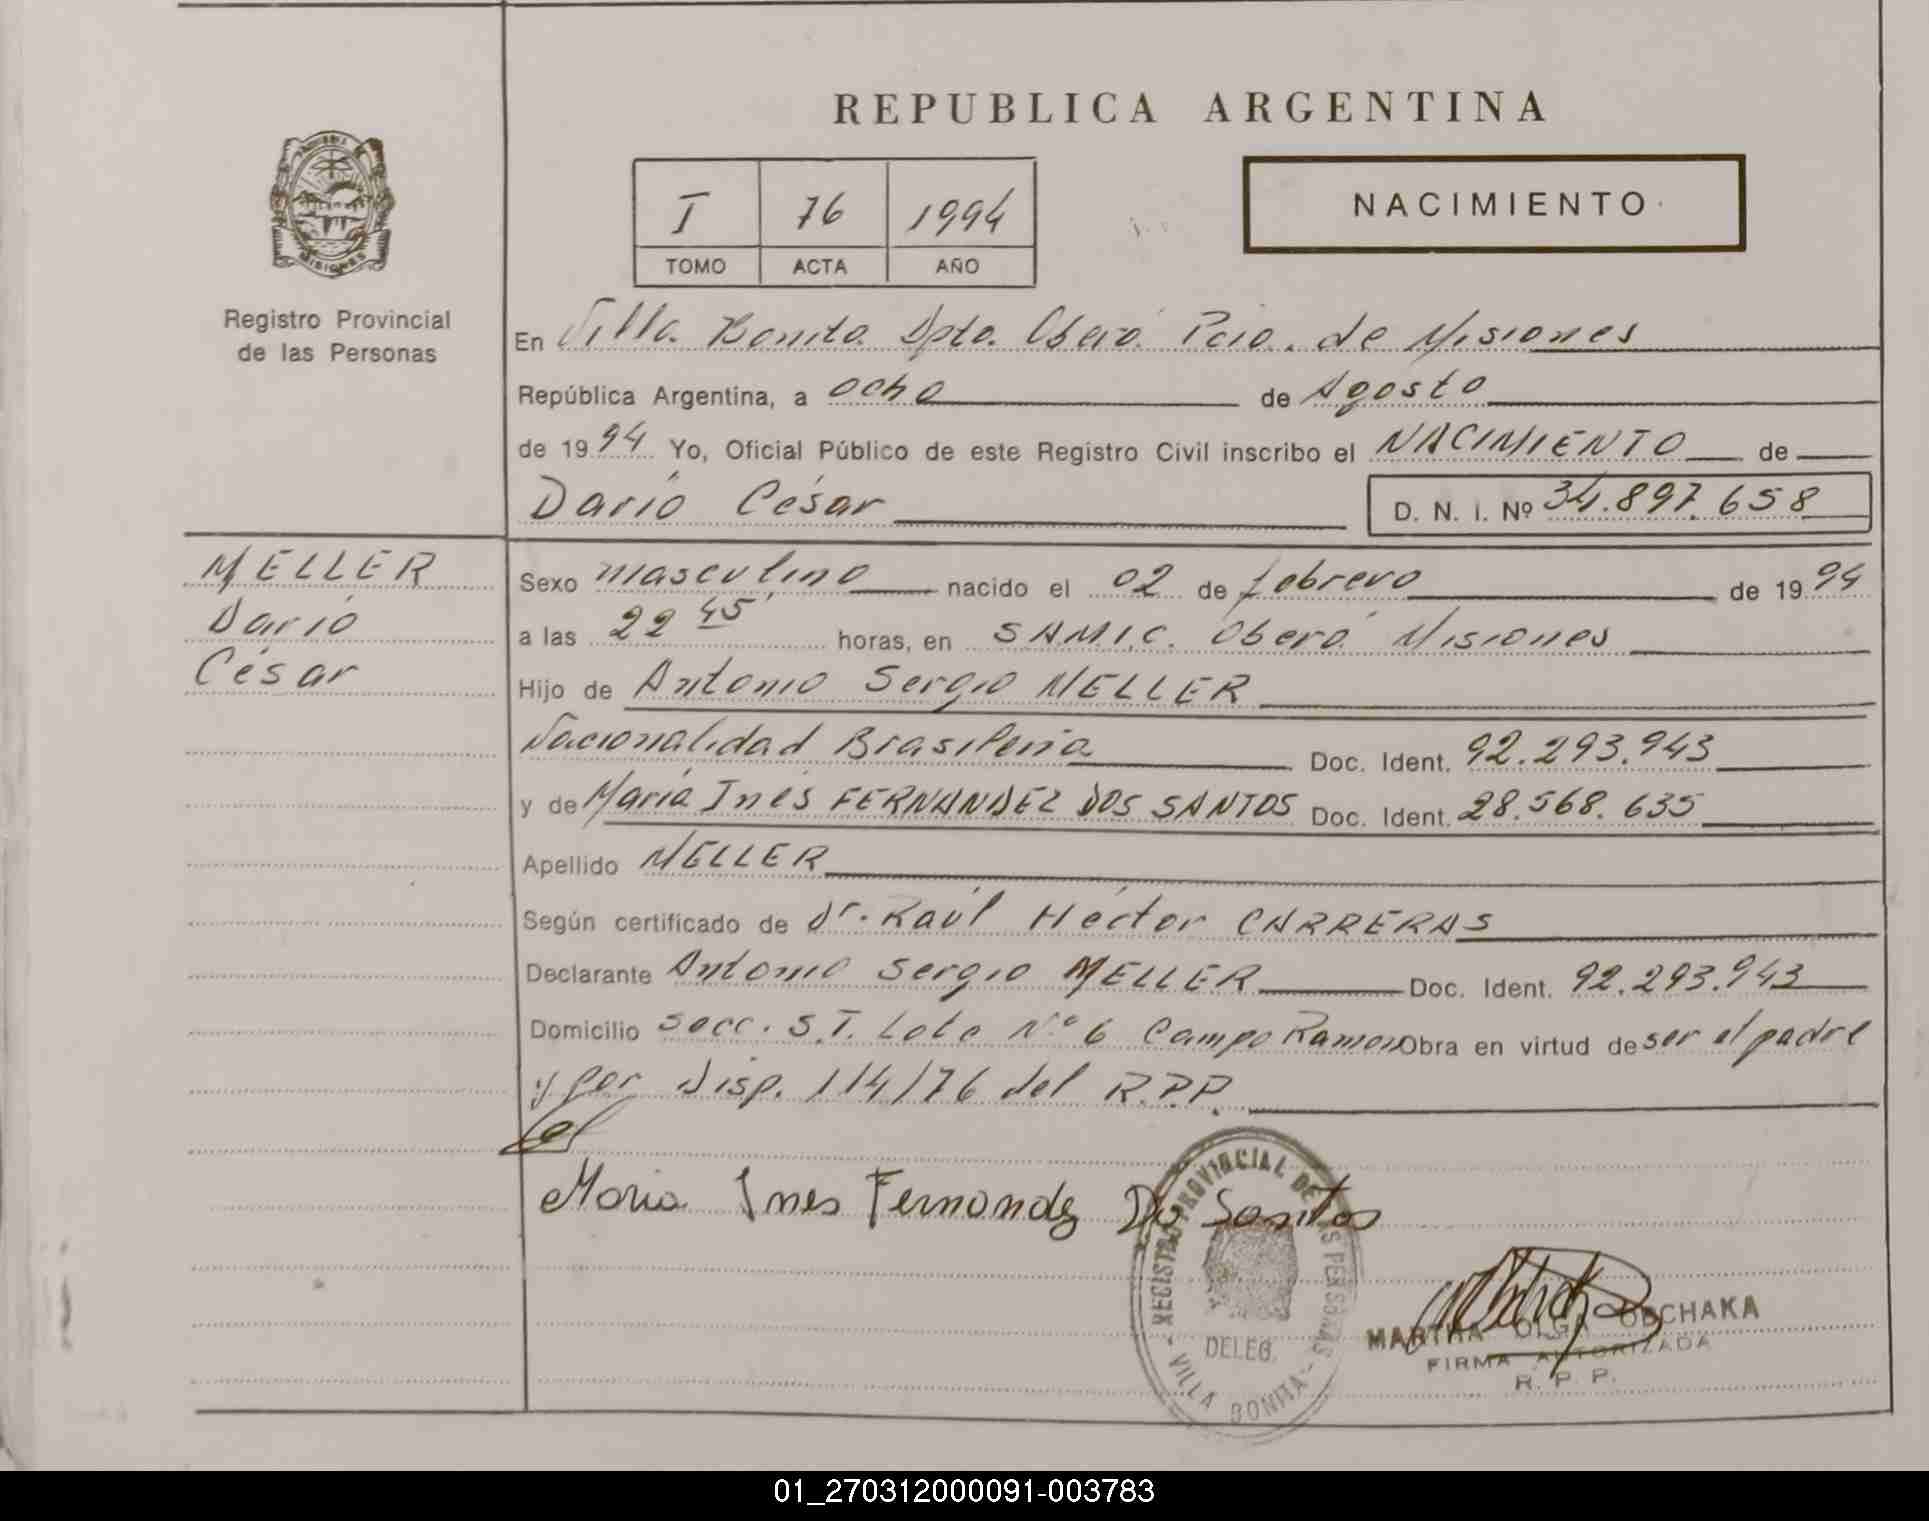 REPUBLICA ARGENTINA
NACIMIENTO
I 76 1994
TOMO ACTA AÑO
MISIONES
Registro Provincial
de las Personas
En Villa Bonita Dpto. Oberá Pcia. de Misiones
República Argentina, a ocho de Agosto
de 1994 Yo, Oficial Público de este Registro Civil inscribo el NACIMIENTO de
Darío César D. N. I. Nº 34.897.658
MELLER
Darío
César
Sexo masculino nacido el 02 de febrero de 1994
a las 22 45 horas, en S.A.M.I.C. Oberá Misiones
Hijo de Antonio Sergio MELLER
Nacionalidad Brasileña Doc. Ident. 92.293.943
y de María Inés FERNANDEZ DOS SANTOS Doc. Ident. 28.568.635
Apellido MELLER
Según certificado de Dr. Raúl Héctor CARRERAS
Declarante Antonio Sergio MELLER Doc. Ident. 92.293.943
Domicilio Secc. S.T. Lote Nº 6 Campo Ramon Obra en virtud de ser el padre
y por Disp. 114/76 del R.P.P.
Maria Ines Fernandz Do Santos
REGISTRO PROVINCIAL DE LAS PERSONAS
DELEG.
- VILLA BONITA -
MARTHA OLGA
FIRMA AUTORIZADA
R. P. P.
01_270312000091-003783